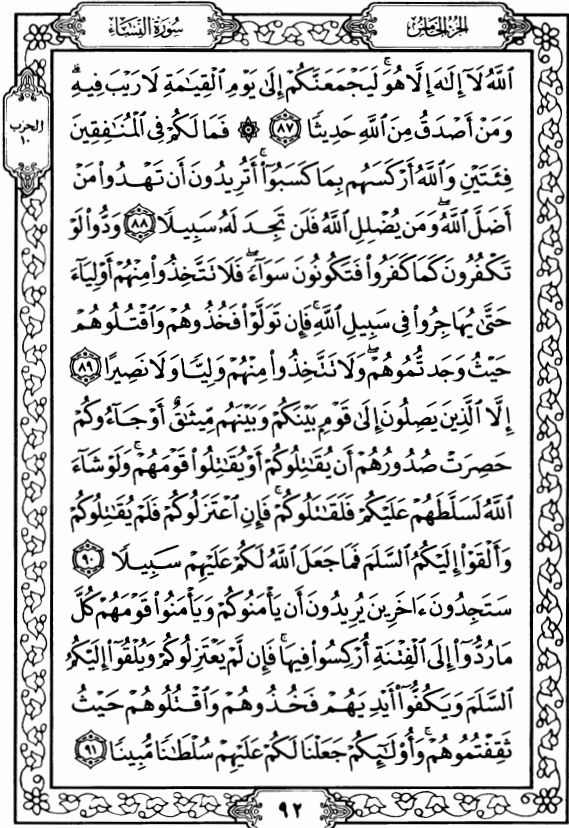 الجزء الخامس
سورة النساء
الحزب
١٠
اللَّهُ لَآ إِلَٰهَ إِلَّا هُوَ ۚ لَيَجْمَعَنَّكُمْ إِلَىٰ يَوْمِ الْقِيَٰمَةِ لَا رَيْبَ فِيهِ ۗ
وَمَنْ أَصْدَقُ مِنَ اللَّهِ حَدِيثًا ٨٧ ۞ فَمَا لَكُمْ فِي الْمُنَٰفِقِينَ
فِئَتَيْنِ وَاللَّهُ أَرْكَسَهُم بِمَا كَسَبُوٓا۟ ۚ أَتُرِيدُونَ أَن تَهْدُوا۟ مَنْ
أَضَلَّ اللَّهُ ۖ وَمَن يُضْلِلِ اللَّهُ فَلَن تَجِدَ لَهُۥ سَبِيلًا ٨٨ وَدُّوا۟ لَوْ
تَكْفُرُونَ كَمَا كَفَرُوا۟ فَتَكُونُونَ سَوَآءً ۖ فَلَا تَتَّخِذُوا۟ مِنْهُمْ أَوْلِيَآءَ
حَتَّىٰ يُهَاجِرُوا۟ فِي سَبِيلِ اللَّهِ ۚ فَإِن تَوَلَّوْا۟ فَخُذُوهُمْ وَاقْتُلُوهُمْ
حَيْثُ وَجَدتُّمُوهُمْ ۖ وَلَا تَتَّخِذُوا۟ مِنْهُمْ وَلِيًّا وَلَا نَصِيرًا ٨٩
إِلَّا الَّذِينَ يَصِلُونَ إِلَىٰ قَوْمٍۭ بَيْنَكُمْ وَبَيْنَهُم مِّيثَٰقٌ أَوْ جَآءُوكُمْ
حَصِرَتْ صُدُورُهُمْ أَن يُقَٰتِلُوكُمْ أَوْ يُقَٰتِلُوا۟ قَوْمَهُمْ ۚ وَلَوْ شَآءَ
اللَّهُ لَسَلَّطَهُمْ عَلَيْكُمْ فَلَقَٰتَلُوكُمْ ۚ فَإِنِ اعْتَزَلُوكُمْ فَلَمْ يُقَٰتِلُوكُمْ
وَأَلْقَوْا۟ إِلَيْكُمُ السَّلَمَ فَمَا جَعَلَ اللَّهُ لَكُمْ عَلَيْهِمْ سَبِيلًا ٩٠
سَتَجِدُونَ ءَاخَرِينَ يُرِيدُونَ أَن يَأْمَنُوكُمْ وَيَأْمَنُوا۟ قَوْمَهُمْ كُلَّ
مَا رُدُّوٓا۟ إِلَى الْفِتْنَةِ أُرْكِسُوا۟ فِيهَا ۚ فَإِن لَّمْ يَعْتَزِلُوكُمْ وَيُلْقُوٓا۟ إِلَيْكُمُ
السَّلَمَ وَيَكُفُّوٓا۟ أَيْدِيَهُمْ فَخُذُوهُمْ وَاقْتُلُوهُمْ حَيْثُ
ثَقِفْتُمُوهُمْ ۚ وَأُو۟لَٰٓئِكُمْ جَعَلْنَا لَكُمْ عَلَيْهِمْ سُلْطَٰنًا مُّبِينًا ٩١
٩٢